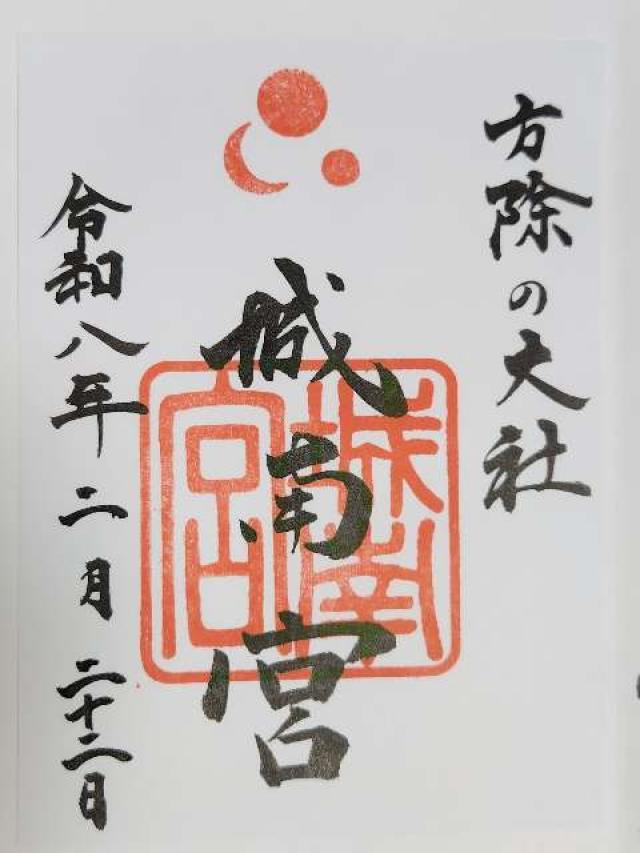 方除の大社
城南宮
城南宮
令和八年二月二十二日